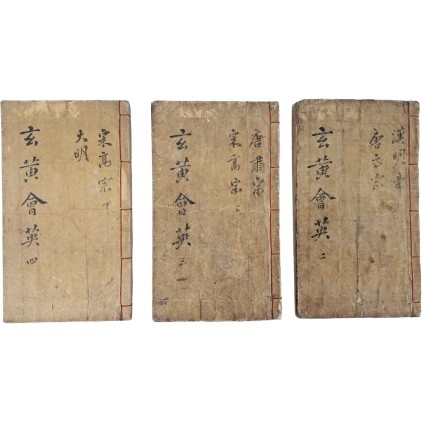 漢明章
唐玄宗
玄黃會英 二
唐肅宗
宋高宗
玄黃會英 三
宋高宗 下
大明
玄黃會英 四